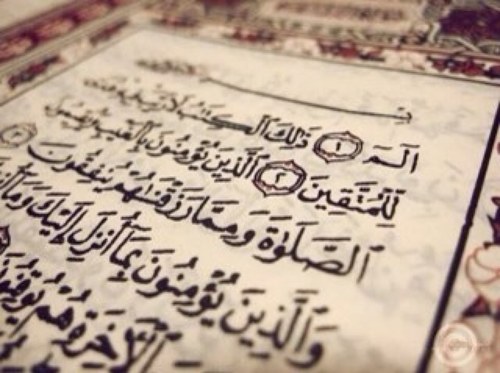 الٓمٓ ١ ذَٰلِكَ ٱلْكِتَٰبُ لَا رَيْبَ فِيهِ هُدًى
لِّلْمُتَّقِينَ ٢ ٱلَّذِينَ يُؤْمِنُونَ بِٱلْغَيْبِ وَيُقِيمُونَ
ٱلصَّلَوٰةَ وَمِمَّا رَزَقْنَٰهُمْ يُنفِقُونَ ٣
وَٱلَّذِينَ يُؤْمِنُونَ بِمَآ أُنزِلَ إِلَيْكَ وَمَآ
ٱلْأَخِرَةِ هُمْ يُوقِنُونَ